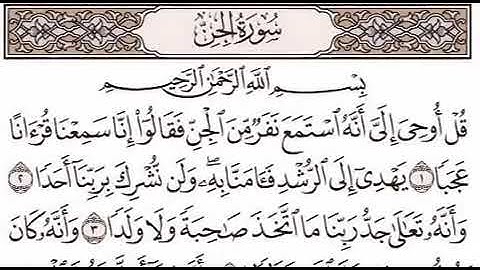 سُورَةُ الجِنِّ
بِسْمِ اللَّهِ الرَّحْمَٰنِ الرَّحِيمِ
قُلْ أُوحِىَ إِلَىَّ أَنَّهُ ٱسْتَمَعَ نَفَرٌ مِّنَ ٱلْجِنِّ فَقَالُوٓا۟ إِنَّا سَمِعْنَا قُرْءَانًا
عَجَبًا ١ يَهْدِىٓ إِلَى ٱلرُّشْدِ فَـَٔامَنَّا بِهِۦ ۖ وَلَن نُّشْرِكَ بِرَبِّنَآ أَحَدًا ٢
وَأَنَّهُۥ تَعَٰلَىٰ جَدُّ رَبِّنَا مَا ٱتَّخَذَ صَٰحِبَةً وَلَا وَلَدًا ٣ وَأَنَّهُۥ كَانَ